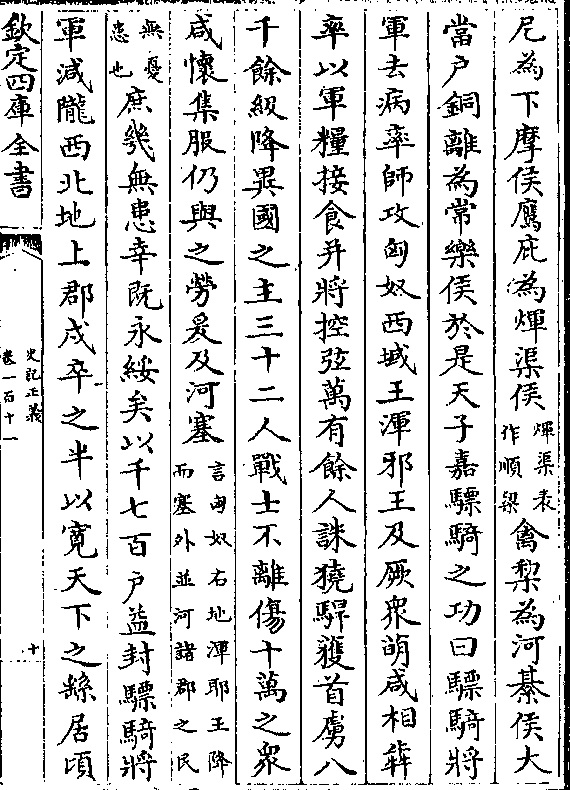 尼為下摩侯鷹庇為煇渠侯煇渠表作順梁禽犁為河綦侯大
當户銅離為常樂侯於是天子嘉驃騎之功曰驃騎將
軍去病率師攻匈奴西域王渾邪王及厥衆萌咸相犇
率以軍糧接食并將控弦萬有餘人誅獟駻獲首虜八
千餘級降異國之主三十二人戰士不離傷十萬之衆
咸懷集服仍與之勞爰及河塞言匈奴右地渾耶王降而塞外並河諸郡之民
無憂患也庶幾無患幸既永綏矣以千七百户益封驃騎將
軍減隴西北地上郡戍卒之半以寛天下之繇居頃
欽定四庫全書
史記正義
卷一百十一
十